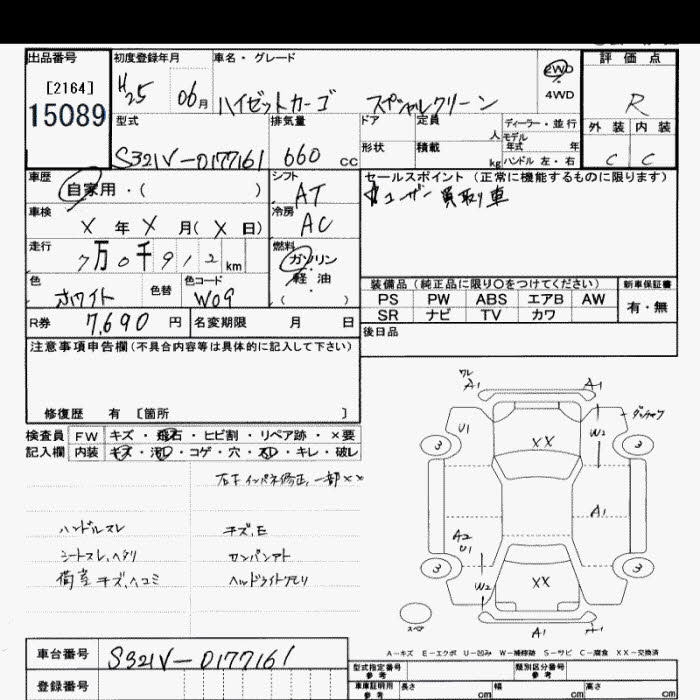 出品番号 初度登録年月 車名・グレード 評価点
[2164] H25 06月 ハイゼットカーゴ スペシャルクリーン 2WD 4WD R
15089 型式 排気量 ドア 定員 人 ディーラー・並行 外装 内装
モデル年式 年
S321V-0177161 660cc 形状 積載 kg ハンドル 左・右 C C
車歴 自家用・( ) シフト AT セールスポイント(正常に機能するものに限ります)
ユーザー買取り車
車検 X年X月(X日) 冷房 AC
走行 7万0千912km 燃料 ガソリン
軽油
( )
色 ホワイト 色替 色コード W09
装備品(純正品に限り○をつけてください) 新車保証書
PS PW ABS エアB AW 有・無
SR ナビ TV カワ
R券 7,690円 名変期限 月 日
後日品
注意事項申告欄(不具合内容等は具体的に記入して下さい)
修復歴 有 [箇所 ]
検査員 FW キズ・飛石・ヒビ割・リペア跡・×要
記入欄 内装 キズ・汚れ・コゲ・穴・スレ・キレ・破レ
右下インパネ修正、一部XX
ハンドルスレ キズ、E
シートスレ、ヘタリ カンバンアト
荷室キズ、ヘコミ ヘッドライトクモリ
ワレ
A1 A1
U1 W2
3 XX 3
A1
A2
U1
3 W2 XX 3
スペア A1 A1
A-キズ E-エクボ U-凹み W-補修跡 S-サビ C-腐食 XX-交換済
車台番号 S321V-0177161
型式指定番号 類別区分番号
参考 参考
登録番号 車庫証明用 長さ cm 幅 cm 高さ cm
参考